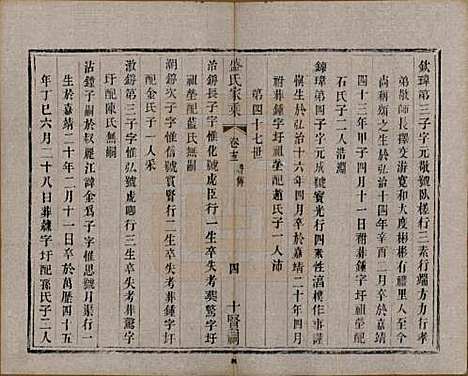 欽璋第三子字元敬號臥槎行三素行端方力行孝
弟敬師長擇交濟寬和大度彬彬有儒者氣習人
尚稱頌之生於弘治四年辛酉二月卒於嘉靖
四十三年甲子四月十一日祔葬鍾字圩祖塋配
石氏子二人浩淵
鍊璋第四子字元 號寶光行四素性溫樸作事謹
慎生於弘治十六年四月卒於嘉靖二十年四月
祔葬鍾字圩祖塋配趙氏子一人沛
第四十七世
盛氏家乘
卷十五
四
十賢祠
治鍔長子字惟化號虛臣行一生卒失考葬驚字圩
祖塋配周氏無嗣
湖鍔次子字惟信號賓賢行二生卒失考葬鍾字圩
配金氏子一人采
澂鍔第三子字惟弘號虛卿行三生卒失考葬驚字
圩配陳氏無嗣
沾鏜子嗣於叔麗江諱金為子字惟思號月渠行一
生於嘉靖二十年二月十一日卒於萬曆四十五
年丁巳六月二十八日葬 字圩配孫氏子二人